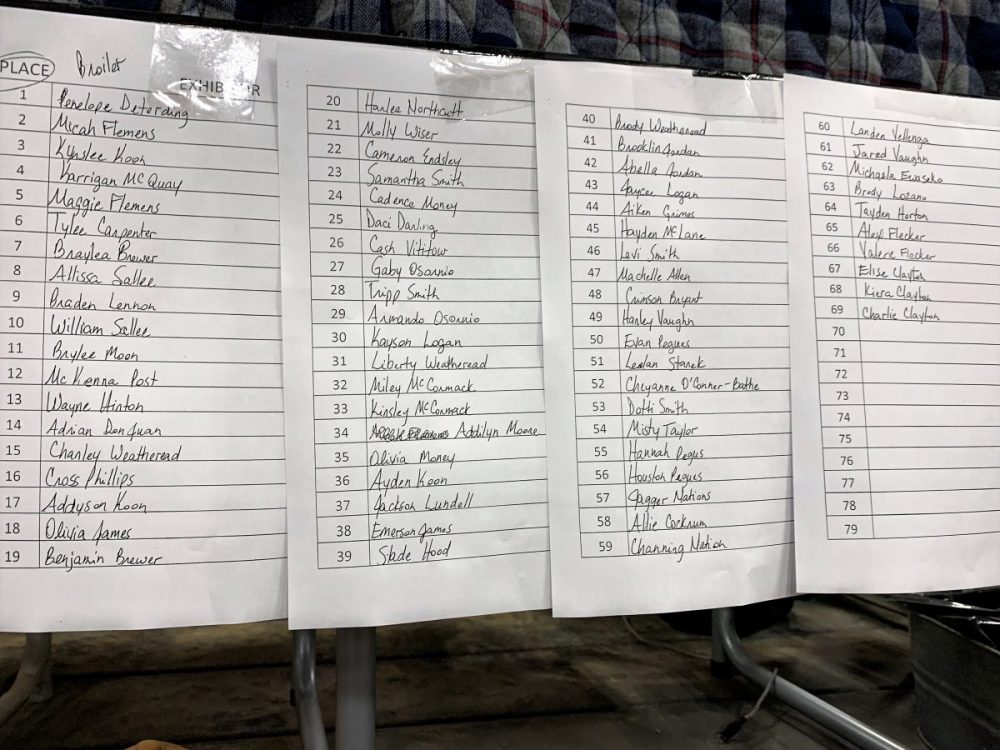 PLACE Broiler EXHIBITOR
1 Penelope Deterding
2 Micah Flemens
3 Kynslee Koon
4 Karrigan McQuay
5 Maggie Flemens
6 Tylee Carpenter
7 Braylea Brewer
8 Allissa Sallee
9 Braden Lennon
10 William Sallee
11 Brylee Moon
12 McKenna Post
13 Wayne Hinton
14 Adrian DonJuan
15 Chanley Weatheread
16 Cross Phillips
17 Addyson Koon
18 Olivia James
19 Benjamin Brewer
20 Hanlee Northcutt
21 Molly Wiser
22 Cameron Endsley
23 Samantha Smith
24 Cadence Money
25 Daci Darling
26 Cash Vititow
27 Gaby Osornio
28 Tripp Smith
29 Armando Osornio
30 Kayson Logan
31 Liberty Weatheread
32 Miley McCormack
33 Kinsley McCormack
34 Addilyn Moore
35 Olivia Money
36 Ayden Koon
37 Jackson Lundell
38 Emerson James
39 Slade Hood
40 Brody Weatheread
41 Brooklin Jordan
42 Abella Jordan
43 Jaycee Logan
44 Aiken Grimes
45 Hayden McLane
46 Levi Smith
47 Machelle Allen
48 Crimson Bryant
49 Hanley Vaughn
50 Evan Pegues
51 Stanek
52 Cheyanne O'Conner-Bathe
53 Dotti Smith
54 Misty Taylor
55 Hannah Pegus
56 Houston Pegues
57 Jagger Nations
58 Allie Cockrum
59 Channing Nation
60 Landen Vellenga
61 Jared Vaughn
62 Michaela Ewasko
63 Brody Lozano
64 Tayden Horton
65 Alex Flecker
66 Valerie Flecker
67 Elise Clayton
68 Kiera Clayton
69 Charlie Clayton
70
71
72
73
74
75
76
77
78
79